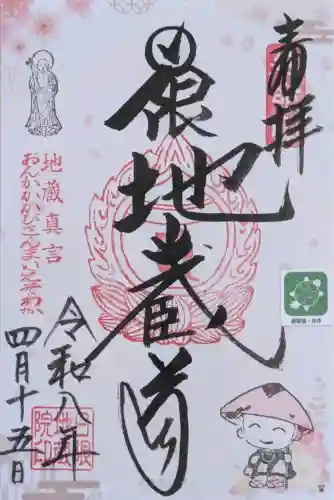 奉拝
根地蔵尊
地蔵真言
おんかかかびさんまいえそわか
令和八年
四月十五日